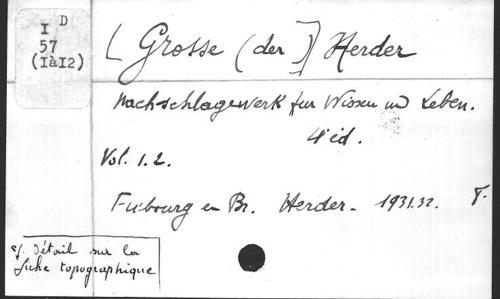 D
I
57
(IàI2)
[Grosse (der)] Herder
Nachschlagewerk fur Wissen un Leben.
4e éd.
Vol. 1.2.
Fribourg en Br. Herder - 1931.32. F.
cf. détail sur la
fiche topographique